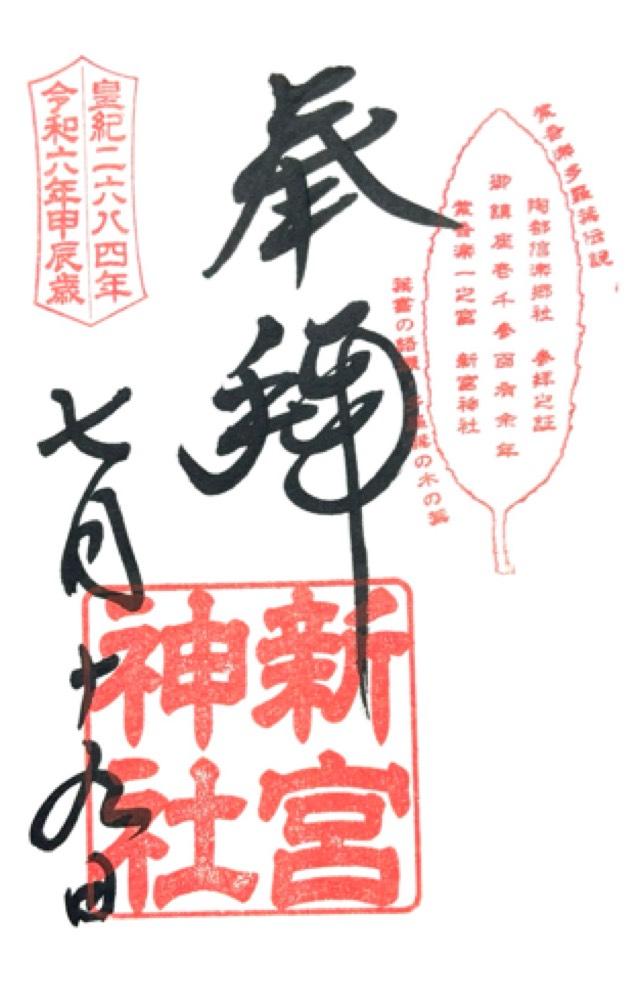 紫香楽多羅葉伝説
陶都信楽郷社 参拝之証
御鎮座壱千参百有余年
紫香楽一之宮 新宮神社
葉書の語源 多羅葉の木の葉
奉拝
新宮
神社
皇紀二六八四年
令和六年甲辰歳
七月十九日